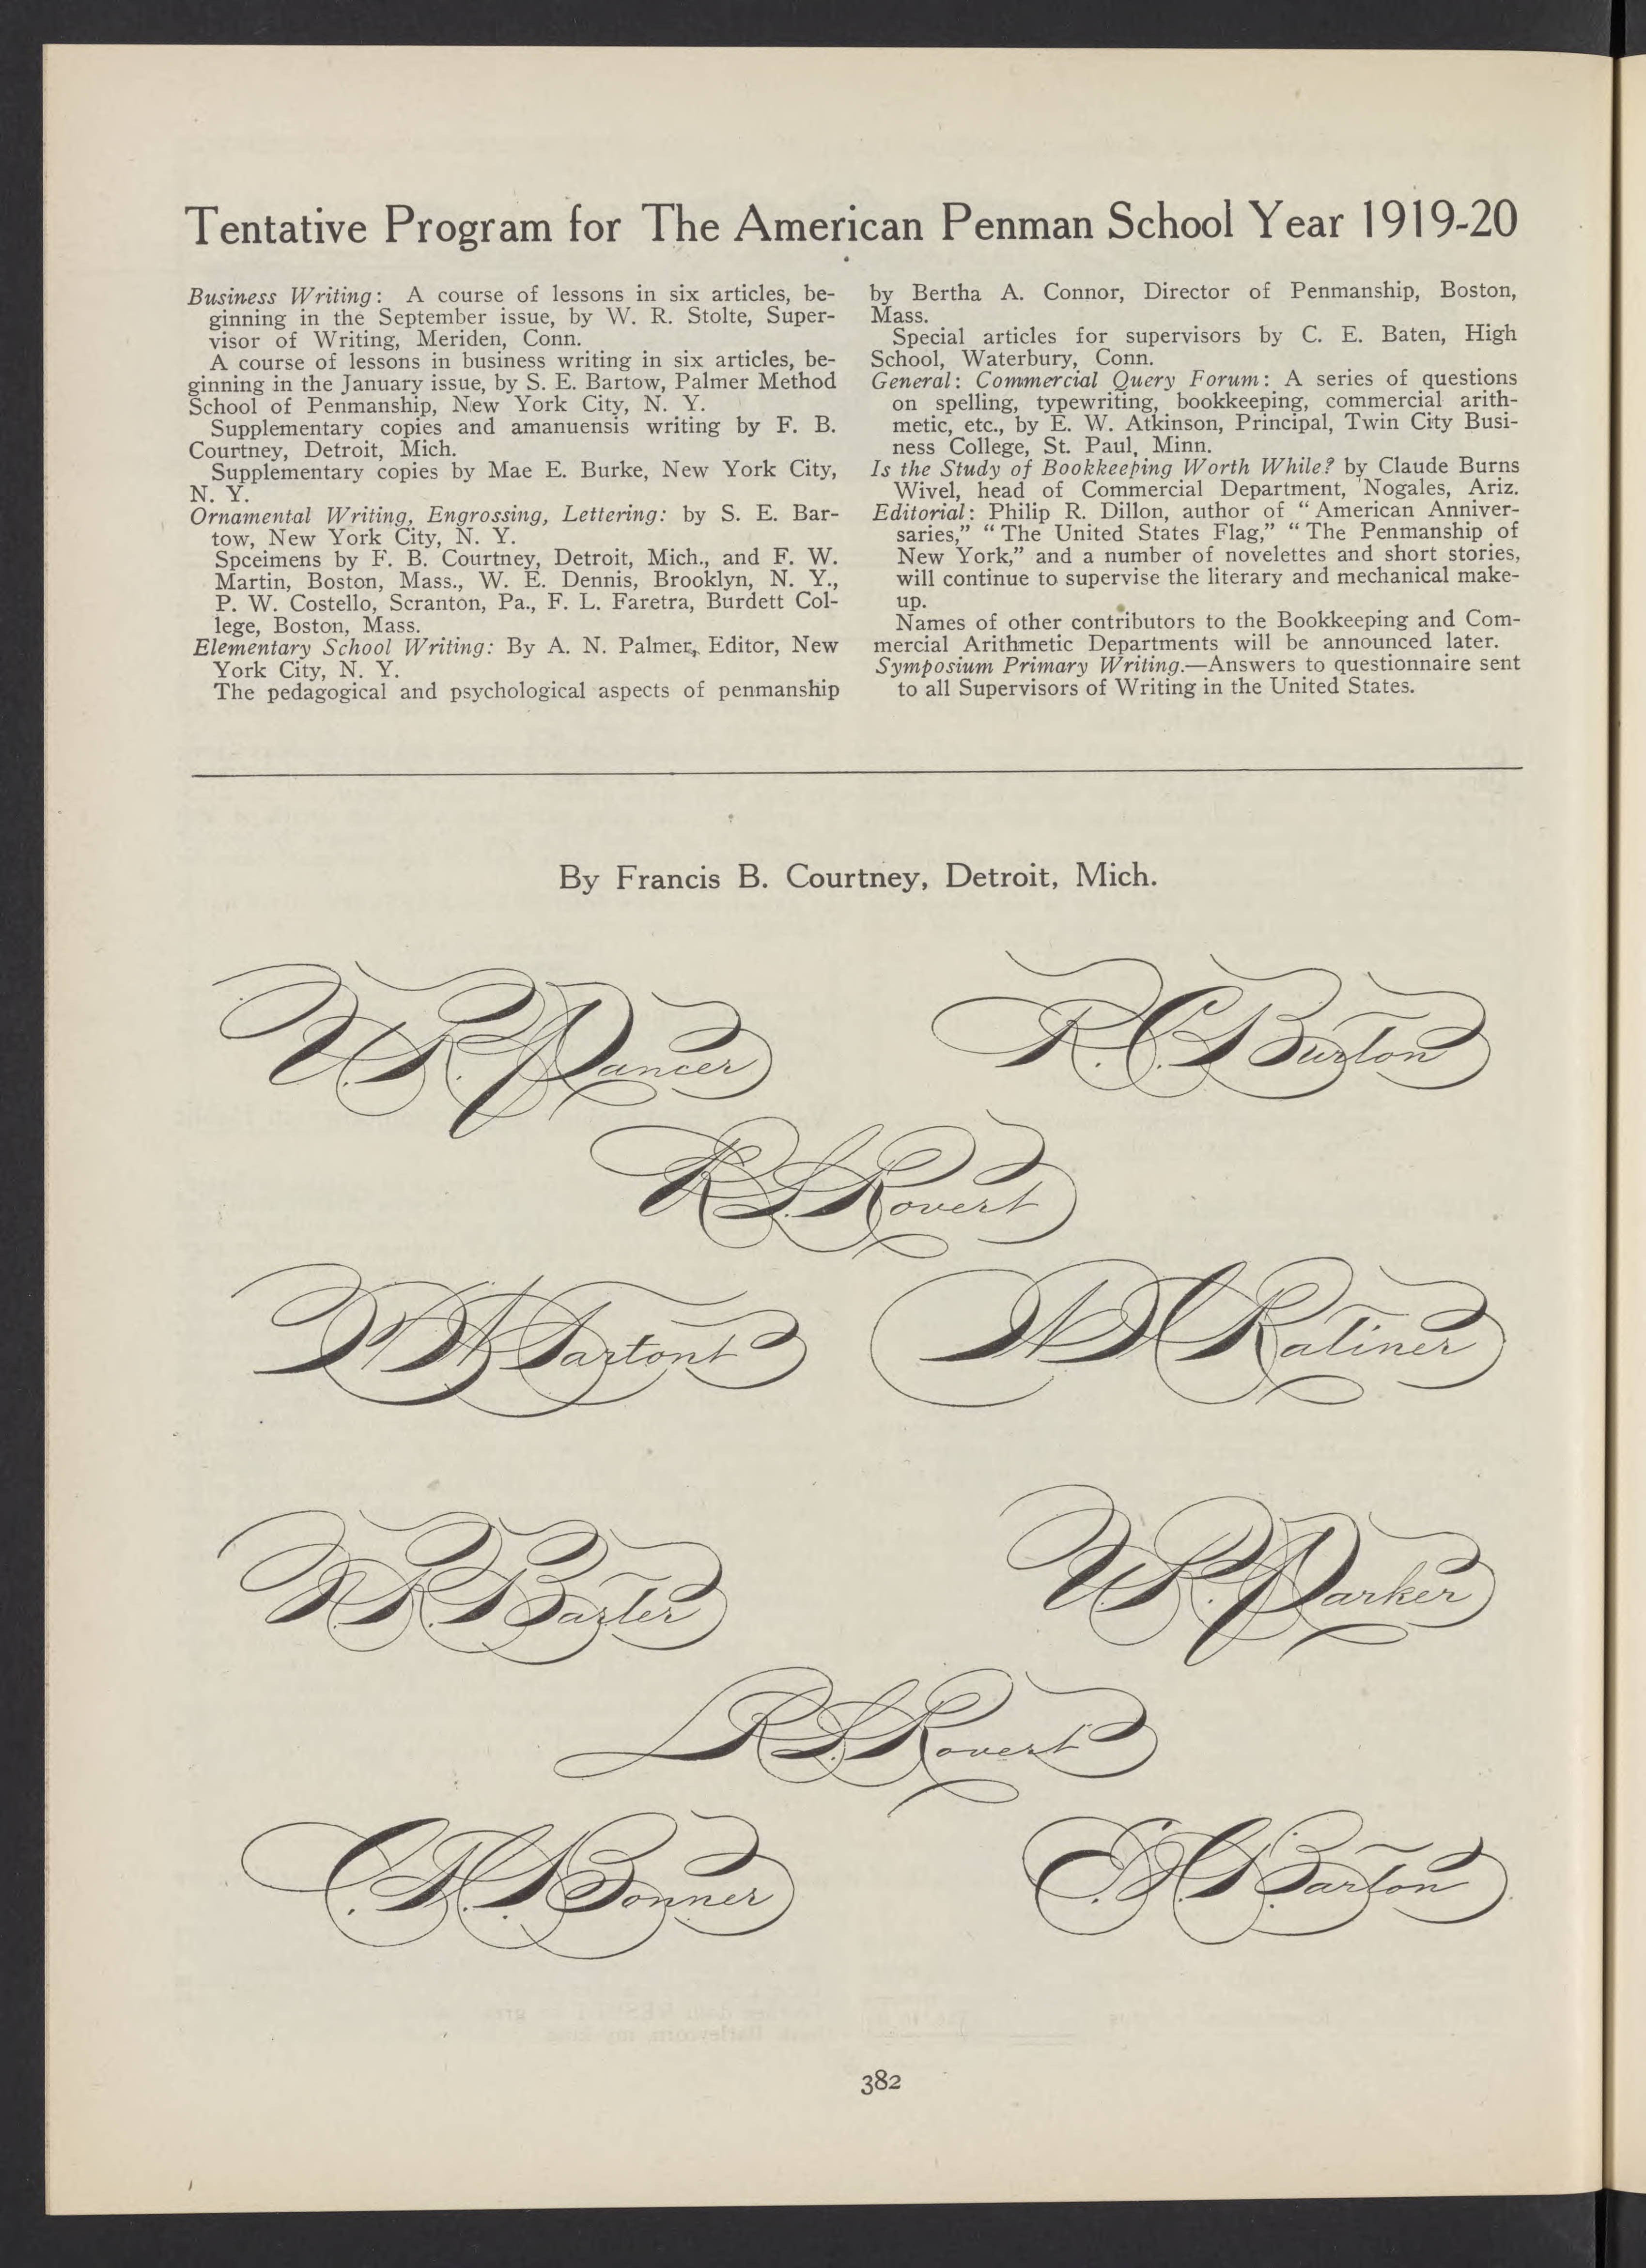 Tentative Program for The American Penman School Year 1919-20
Business Writing: A course of lessons in six articles, be-
ginning in the September issue, by W. R. Stolte, Super-
visor of Writing, Meriden, Conn.
A course of lessons in business writing in six articles, be-
ginning in the January issue, by S. E. Bartow, Palmer Method
School of Penmanship, New York City, N. Y.
Supplementary copies and amanuensis writing by F. B.
Courtney, Detroit, Mich.
Supplementary copies by Mae E. Burke, New York City,
N. Y.
Ornamental Writing, Engrossing, Lettering: by S. E. Bar-
tow, New York City, N. Y.
Spceimens by F. B. Courtney, Detroit, Mich., and F. W.
Martin, Boston, Mass., W. E. Dennis, Brooklyn, N. Y.,
P. W. Costello, Scranton, Pa., F. L. Faretra, Burdett Col-
lege, Boston, Mass.
Elementary School Writing: By A. N. Palmer, Editor, New
York City, N. Y.
The pedagogical and psychological aspects of penmanship
by Bertha A. Connor, Director of Penmanship, Boston,
Mass.
Special articles for supervisors by C. E. Baten, High
School, Waterbury, Conn.
General: Commercial Query Forum: A series of questions
on spelling, typewriting, bookkeeping, commercial arith-
metic, etc., by E. W. Atkinson, Principal, Twin City Busi-
ness College, St. Paul, Minn.
Is the Study of Bookkeeping Worth While? by Claude Burns
Wivel, head of Commercial Department, Nogales, Ariz.
Editorial: Philip R. Dillon, author of “American Anniver-
saries,” “The United States Flag,” “The Penmanship of
New York,” and a number of novelettes and short stories,
will continue to supervise the literary and mechanical make-
up.
Names of other contributors to the Bookkeeping and Com-
mercial Arithmetic Departments will be announced later.
Symposium Primary Writing.—Answers to questionnaire sent
to all Supervisors of Writing in the United States.
By Francis B. Courtney, Detroit, Mich.
R. C. Burton
R S. Rovert
Ratiner
Parker
R S. Rovert
Bonner
Barton
382